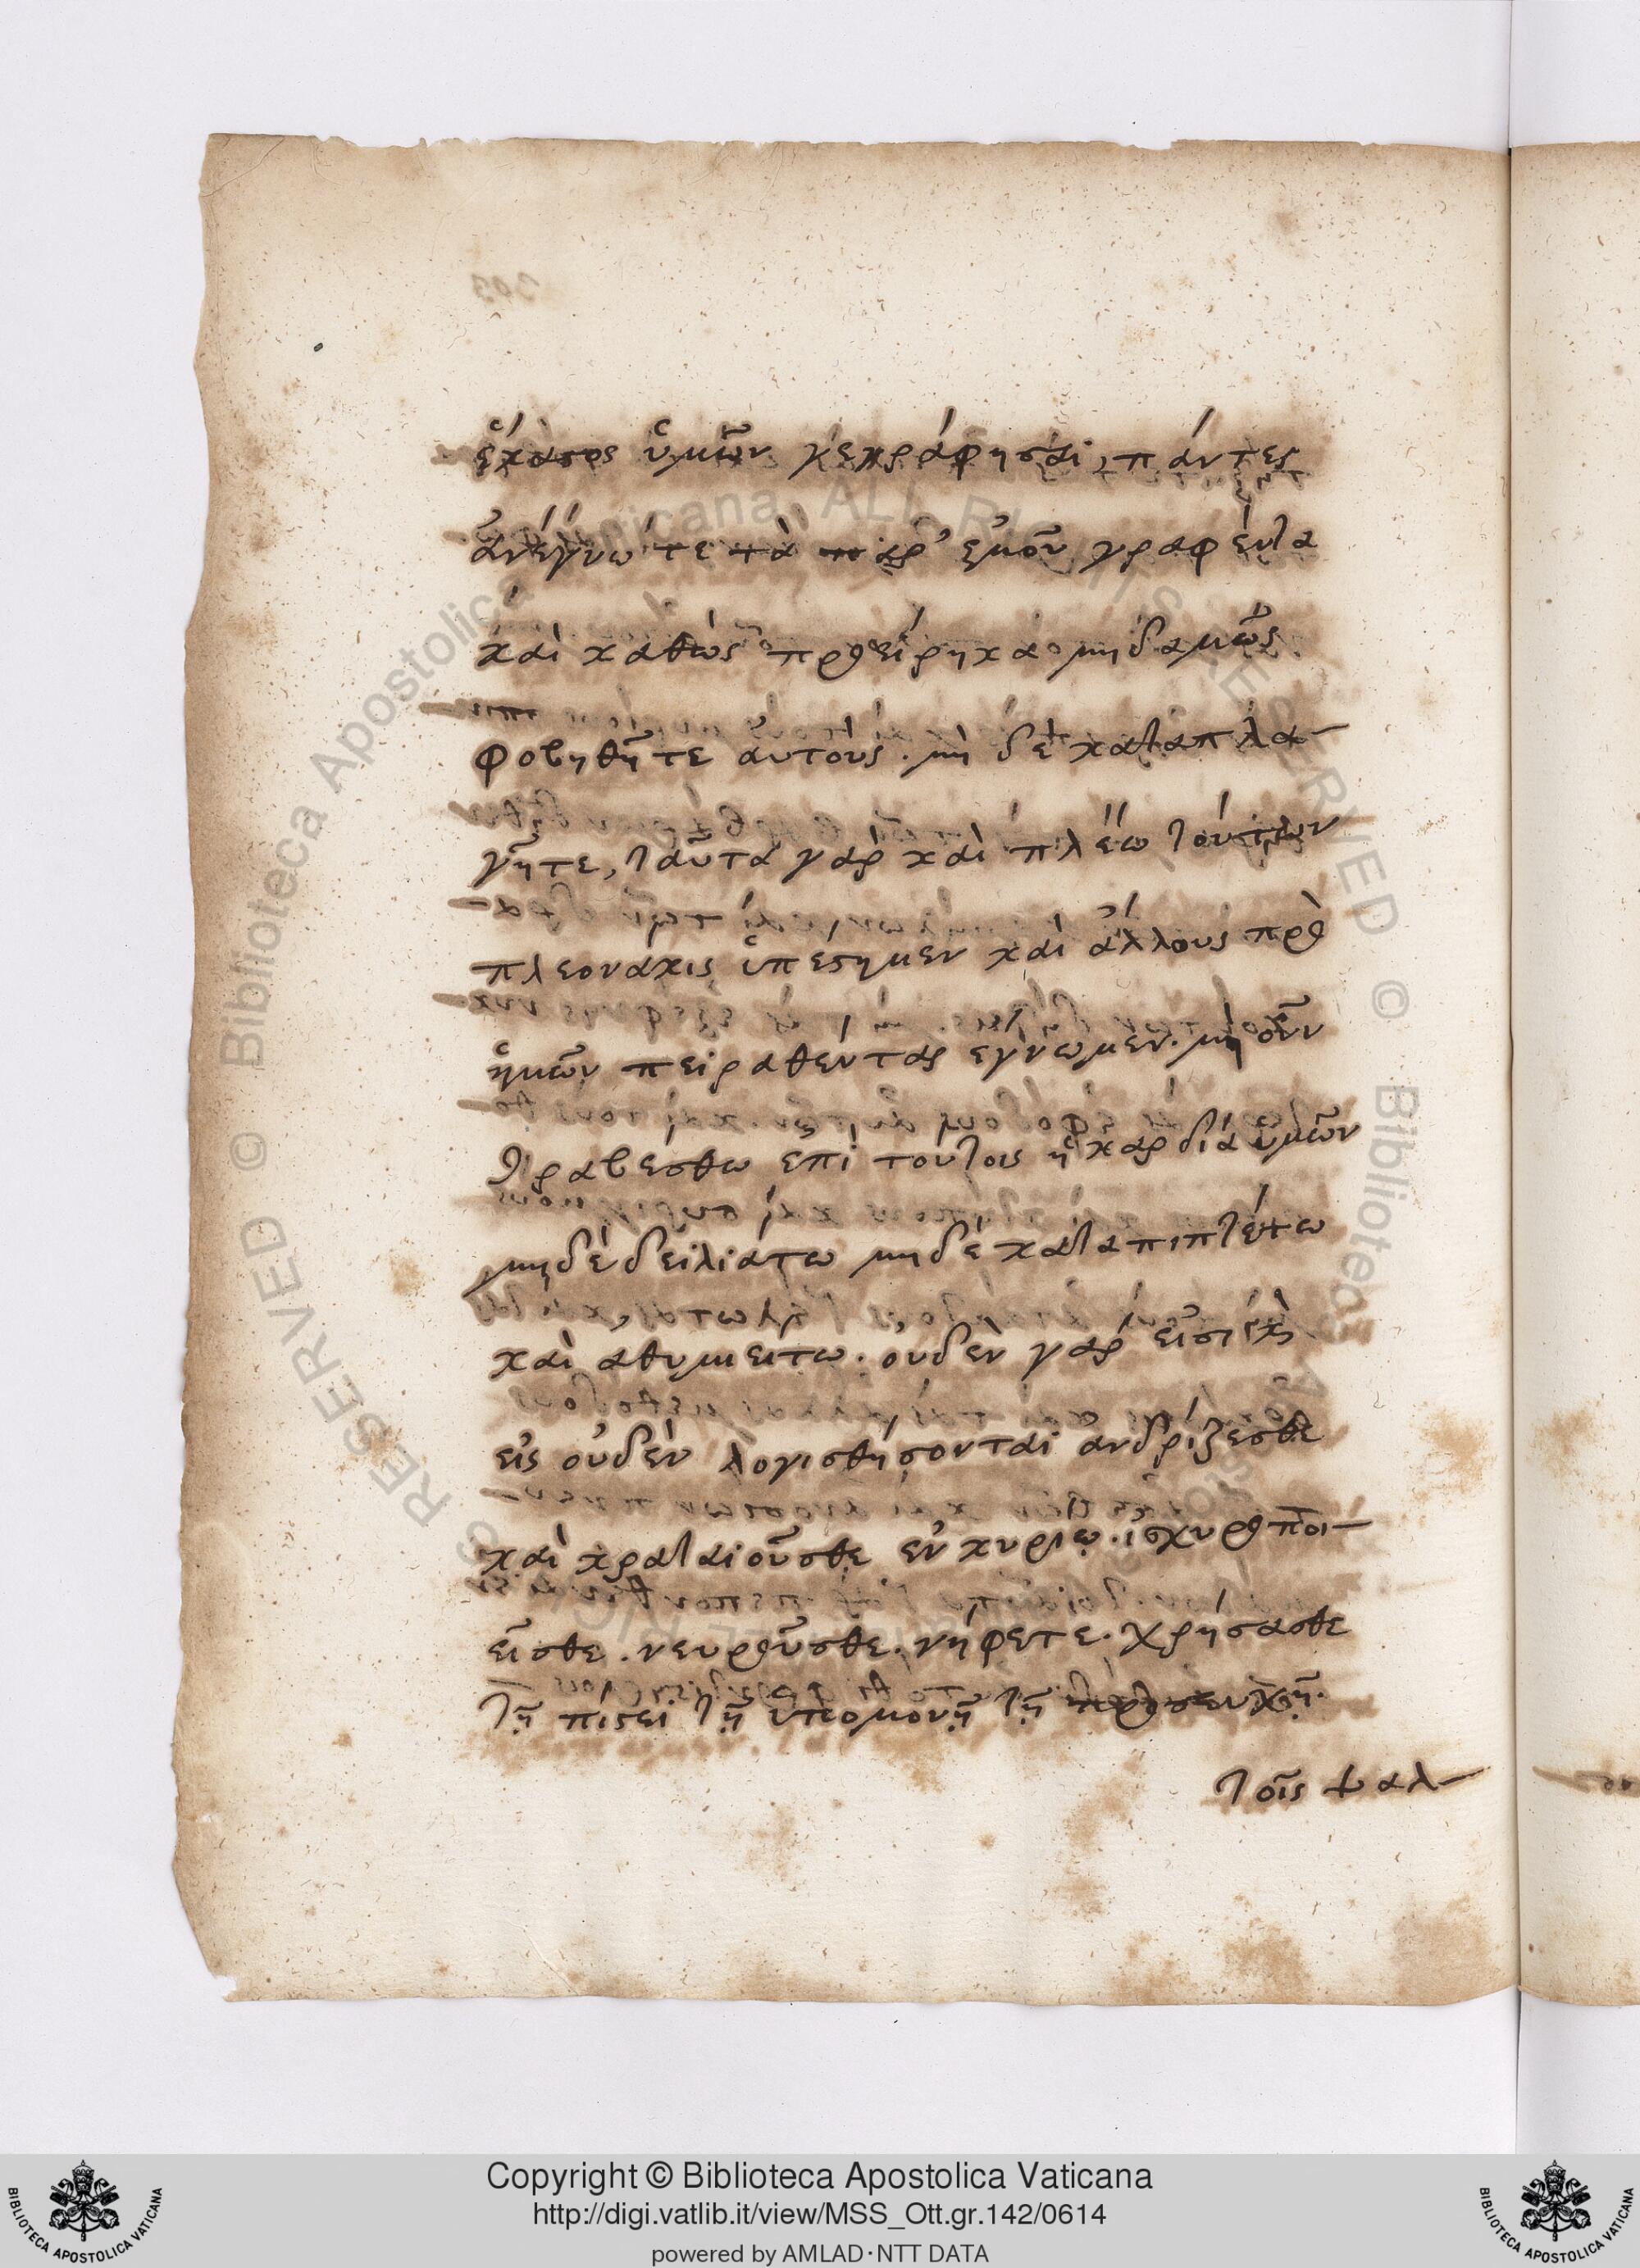 ἕκαστος ὑμῶν γεγράφησαι, πάντες
ἀνέγνωτε τὰ παρ' ἐμοῦ γραφέντα
καὶ καθὼς προείρηκα μηδαμῶς
φοβηθῆτε αὐτούς. μὴ δὲ καταπλα-
γῆτε, ταῦτα γὰρ καὶ πλέω τούτων
πλεονάκις ὑπέστημεν καὶ ἄλλους πρὸ
ἡμῶν πειραθέντας ἔγνωμεν. μὴ οὖν
θραβέσθω ἐπὶ τούτοις ἡ καρδία ὑμῶν
μηδὲ δειλιάτω μηδὲ καταπιπτέτω
καὶ ἀθυμείτω. οὐδὲν γὰρ εἰσὶ καὶ
εἰς οὐδὲν λογισθήσονται ἀνδρίζεσθε
καὶ κραταιοῦσθε ἐν κυρίῳ. ἰσχυροποι-
εῖσθε. νευροῦσθε. νήφετε. χρήσασθε
τῇ πίστει τῇ ὑπομονῇ τῇ προσευχῇ.
τοῖς ψαλ-
Copyright © Biblioteca Apostolica Vaticana
http://digi.vatlib.it/view/MSS_Ott.gr.142/0614
powered by AMLAD·NTT DATA
BIBLIOTECA APOSTOLICA VATICANA
BIBLIOTECA APOSTOLICA VATICANA